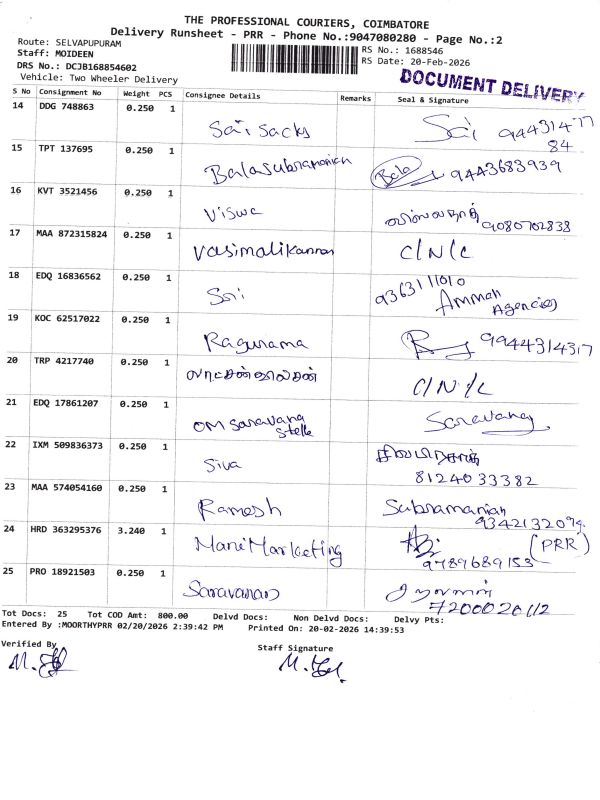 THE PROFESSIONAL COURIERS, COIMBATORE
Delivery Runsheet - PRR - Phone No.:9047080280 - Page No.:2
Route: SELVAPUPURAM
Staff: MOIDEEN
DRS No.: DCJB168854602
Vehicle: Two Wheeler Delivery
RS No.: 1688546
RS Date: 20-Feb-2026
DOCUMENT DELIVERY
S No Consignment No Weight PCS Consignee Details Remarks Seal & Signature
14 DDG 748863 0.250 1 Sai Sacks Sai 94431477
84
15 TPT 137695 0.250 1 Balasubramanian Bala 9443683939
16 KVT 3521456 0.250 1 Viswa 9080702838
17 MAA 872315824 0.250 1 Vasimalikannan C/N/L
18 EDQ 16836562 0.250 1 Sri 9363111010
Amman
Agencies
19 KOC 62517022 0.250 1 Ragurama 9944314317
20 TRP 4217740 0.250 1 C/N/L
21 EDQ 17861207 0.250 1 OM Saravana Saravana
Stelle
22 IXM 509836373 0.250 1 Siva
8124033382
23 MAA 574054160 0.250 1 Ramesh Subramanian
24 HRD 363295376 3.240 1 Mani Marketing (PRR)
9789689153
25 PRO 18921503 0.250 1 Saravanan சரவணன்
7200020112
Tot Docs: 25 Tot COD Amt: 800.00 Delvd Docs: Non Delvd Docs: Delvy Pts:
Entered By :MOORTHYPRR 02/20/2026 2:39:42 PM Printed On: 20-02-2026 14:39:53
Verified By Staff Signature